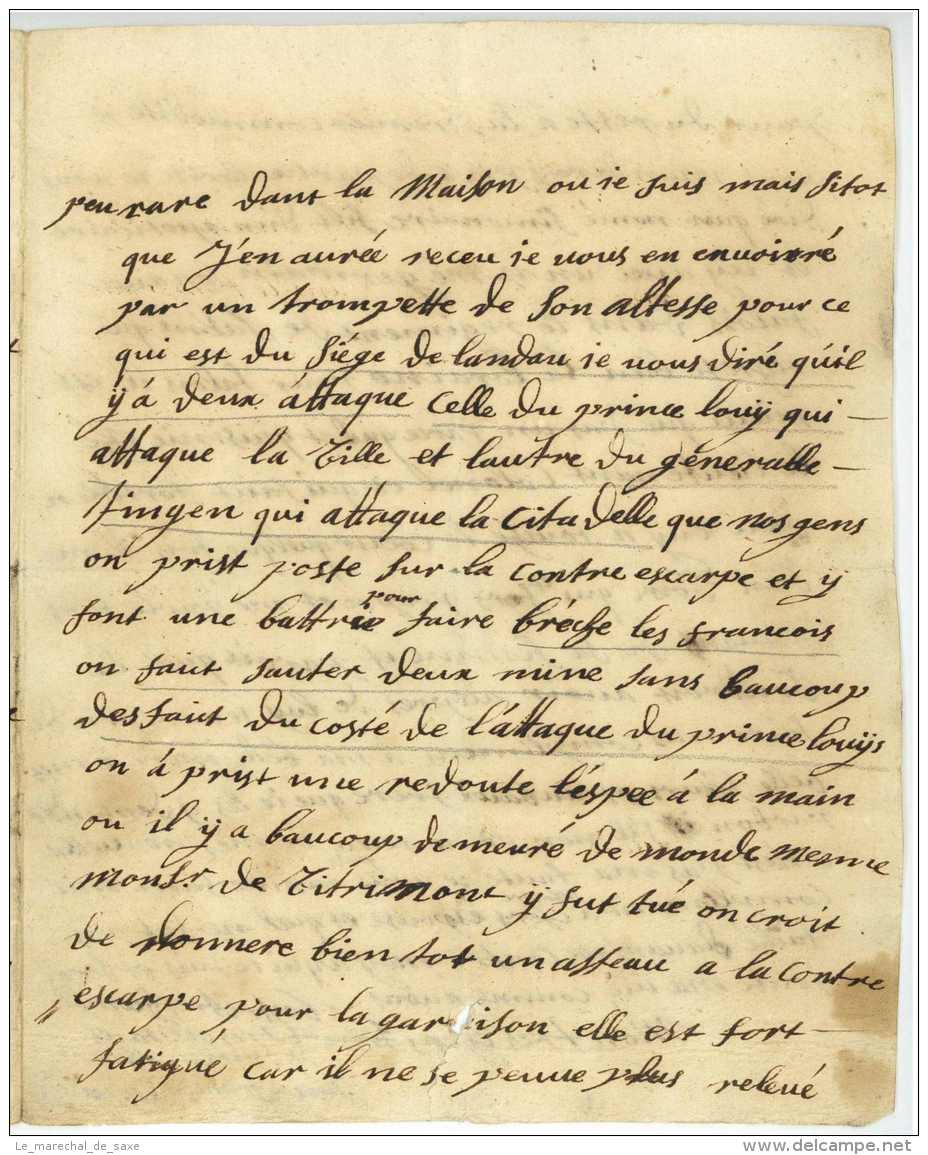 peu rare dant la Maison ou ie suis mais sitot
que J'en aurée receu ie vous en envoirré
par un trompette de Son altesse pour ce
qui est du siége de landau ie vous diré qúil
ÿ á deux áttaque celle du prince louÿ qui -
attaque la Ville et lautre du géneralle -
tingen qui attaque la Citadelle que nos gens
on prist poste sur la contre escarpe et ÿ
font une battrie pour faire bréche les francois
on faict sauter deux mine sans baucoup
desfaict du costé de l'áttaque du prince louÿs
on á prist une redoute l'éspée á la main
ou il ÿ a baucoup demeuré de monde mesme
Monsr. de Vitrimont ÿ fut tué on croit
de donnere bien tot un asseau a la contre
escarpe pour la garnison elle est fort -
fatigué car il ne se peuue plus relevé
Le_marechal_de_saxe
delcampe.net